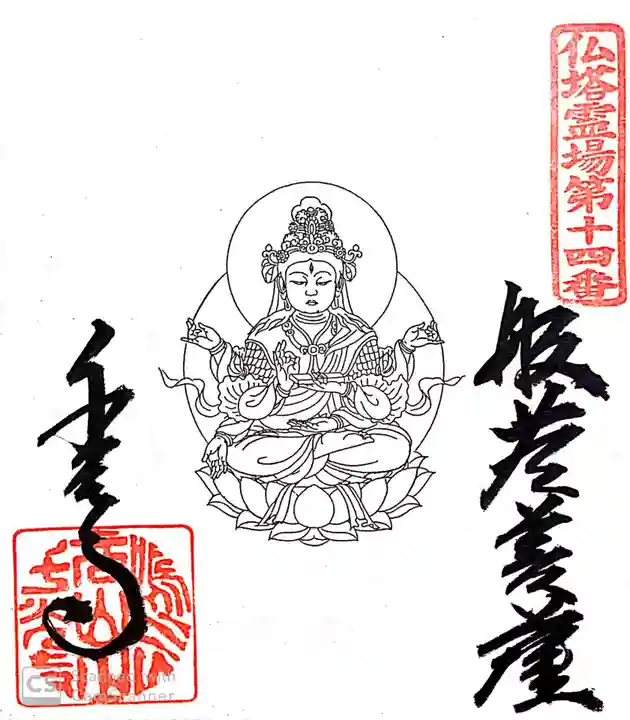 仏塔霊場第十四番
般若菩薩
千光寺
CS Scanned with
CamScanner